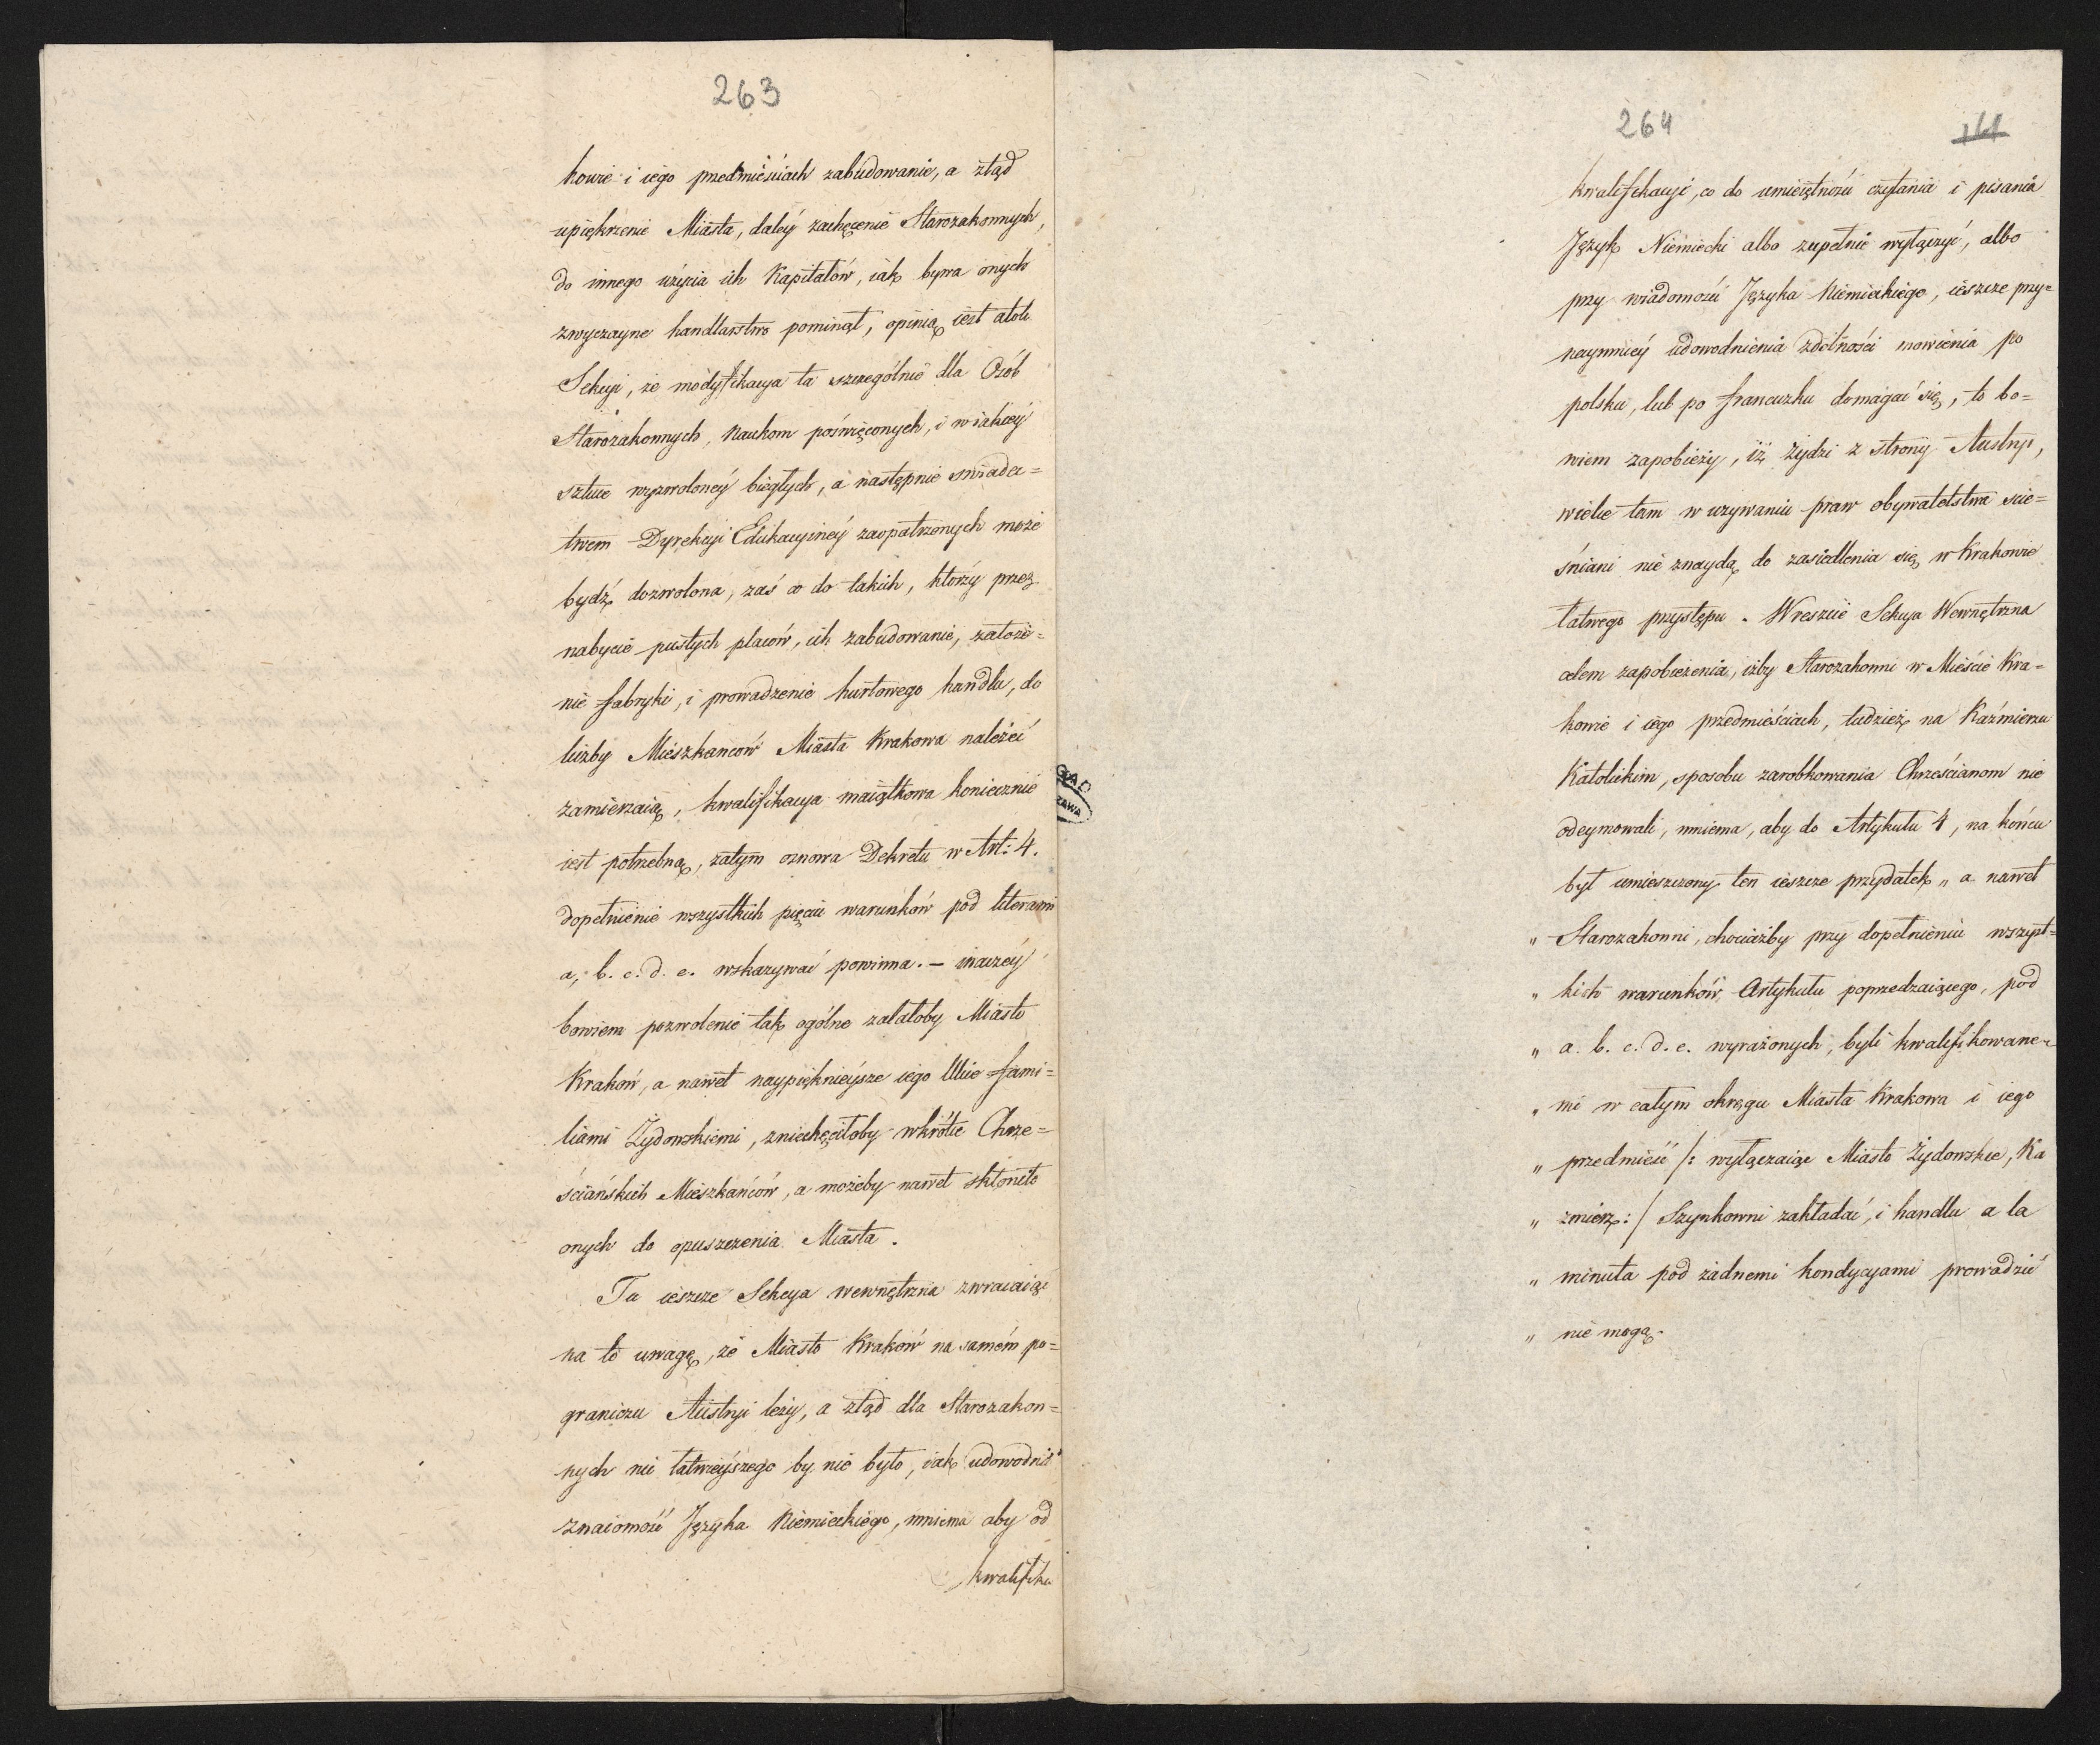 263
kowie i iego przedmieściach zabudowanie, a ztąd
upiękrzenie Miasta, daléy zachęcenie Starozakonnych,
do innego użycia ich Kapitałów, iak bywa onych
zwyczayne handlarstwo pominąt, opinią iest atoli
Sekcyi, że modyfikacya ta szczególnie dla Osób
Starozakonnych, Naukom poświęconych, i w iakiey
sztuce wyzwoloney biegłych, a następnie swiadec=
twem Dyrekcyi Edukacyiney zaopatrzonych może
bydź dozwolona, zaś co do takich, którzy przez
nabycie pustych placów, ich zabudowanie, założe=
nie fabryki, i prowadzenie hurtowego handlu, do
liczby Mieszkańców Miasta Krakowa należeć
zamierzaią, kwalifikacya maiątkowa koniecznie
iest potrzebną, zatym osnowa Dekretu w Art: 4.
dopełnienie wszystkich pięciu warunków pod literami
a, b. c. d. e. wskazywać powinna. – inaczéy
bowiem pozwolenie tak ogólne zalałoby Miasto
Kraków, a nawet naypięknieysze iego Ulice fami=
liami Żydowskiemi, zniechęciłoby wkrótce Chrze=
ściańskich Mieszkańców, a możeby nawet skłoniło
onych do opuszczenia Miasta.
Tu ieszcze Sekcya wewnętrzna zwracaiąc
na to uwagę, że Miasto Kraków na samém po=
graniczu Austryi leży, a ztąd dla Starozakon=
nych nic łatwieyszego by nie było, iak udowodnić
znaiomość Języka Niemieckiego, mniema aby od
kwalifika
264
161
kwalifikacyi, co do umieiętności czytania i pisania
Język Niemiecki albo zupełnie wyłączyć, albo
przy wiadomości Języka Niemieckiego, ieszcze przy=
naymniey udowodnienia zdolności mowienia po
polsku, lub po francuzku domagać się, to bo=
wiem zapobieży, iż Żydzi z strony Austryi,
wielce tam w używaniu praw obywatelstwa ście=
śniani nie znaydą do zasiedlenia się w Krakowie
łatwego przystępu. Wreszcie Sekcya Wewnętrzna
celem zapobieżenia, iżby Starozakonni w Mieście Kra=
kowie i iego przedmieściach, tudzież na Kaźmierzu
Katolickim, sposobu zarobkowania Chrześcianom nie
odeymowali, mniema, aby do Artykułu 4, na końcu
był umieszczony ten ieszcze przydatek „ a nawet
„ Starozakonni, chociażby przy dopełnieniu wszyst=
„ kich warunków, Artykułu poprzedzaiącego, pod
„ a. b. c. d. e. wyrażonych, byli kwalifikowane=
„ mi w całym okręgu Miasta Krakowa i iego
„ przedmieść /: wyłączaiąc Miasto Żydowskie, Ka
„ zmierz :/ Szynkowni zakładać, i handlu a la
„ minuta pod żadnemi kondycyami prowadzić
„ nie mogą.